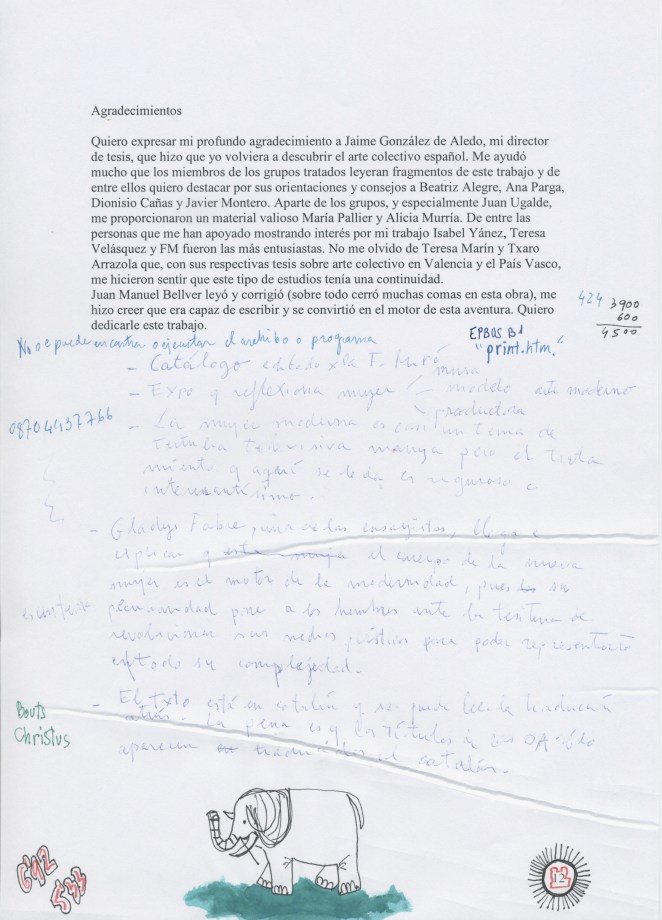 Agradecimientos
Quiero expresar mi profundo agradecimiento a Jaime González de Aledo, mi director
de tesis, que hizo que yo volviera a descubrir el arte colectivo español. Me ayudó
mucho que los miembros de los grupos tratados leyeran fragmentos de este trabajo y de
entre ellos quiero destacar por sus orientaciones y consejos a Beatriz Alegre, Ana Parga,
Dionisio Cañas y Javier Montero. Aparte de los grupos, y especialmente Juan Ugalde,
me proporcionaron un material valioso María Pallier y Alicia Murría. De entre las
personas que me han apoyado mostrando interés por mi trabajo Isabel Yánez, Teresa
Velásquez y FM fueron las más entusiastas. No me olvido de Teresa Marín y Txaro
Arrazola que, con sus respectivas tesis sobre arte colectivo en Valencia y el País Vasco,
me hicieron sentir que este tipo de estudios tenía una continuidad.
Juan Manuel Bellver leyó y corrigió (sobre todo cerró muchas comas en esta obra), me
hizo creer que era capaz de escribir y se convirtió en el motor de esta aventura. Quiero
dedicarle este trabajo.
424
3900
600
4500
EPBOS B1
"print.htm."
No se puede encontrar o ejecutar el archibo o programa
- Catálogo editado x la F. Miró
- Expo q reflexiona mujer
musa
modelo arte moderno
productora
08704437766
- La mujer moderna es casi un tema de
tertulia televisiva maruja pero el trata
miento q aquí se le da es riguroso e
interesantísimo.
- Gladys Fabre, una de las ensayistas, llega a
explicar q el cuerpo de la nueva
mujer es el motor de la modernidad, pues su
pone a los hombres ante la tesitura de
revolucionar sus medios plásticos para poder representarlo
en todo su complejidad.
- El txto está en catalán y se puede leer la traducción
atrás. La pena es q los títulos de las OA sólo
aparecen traducidos al catalán.
Bouts
Christus
G42
533
12